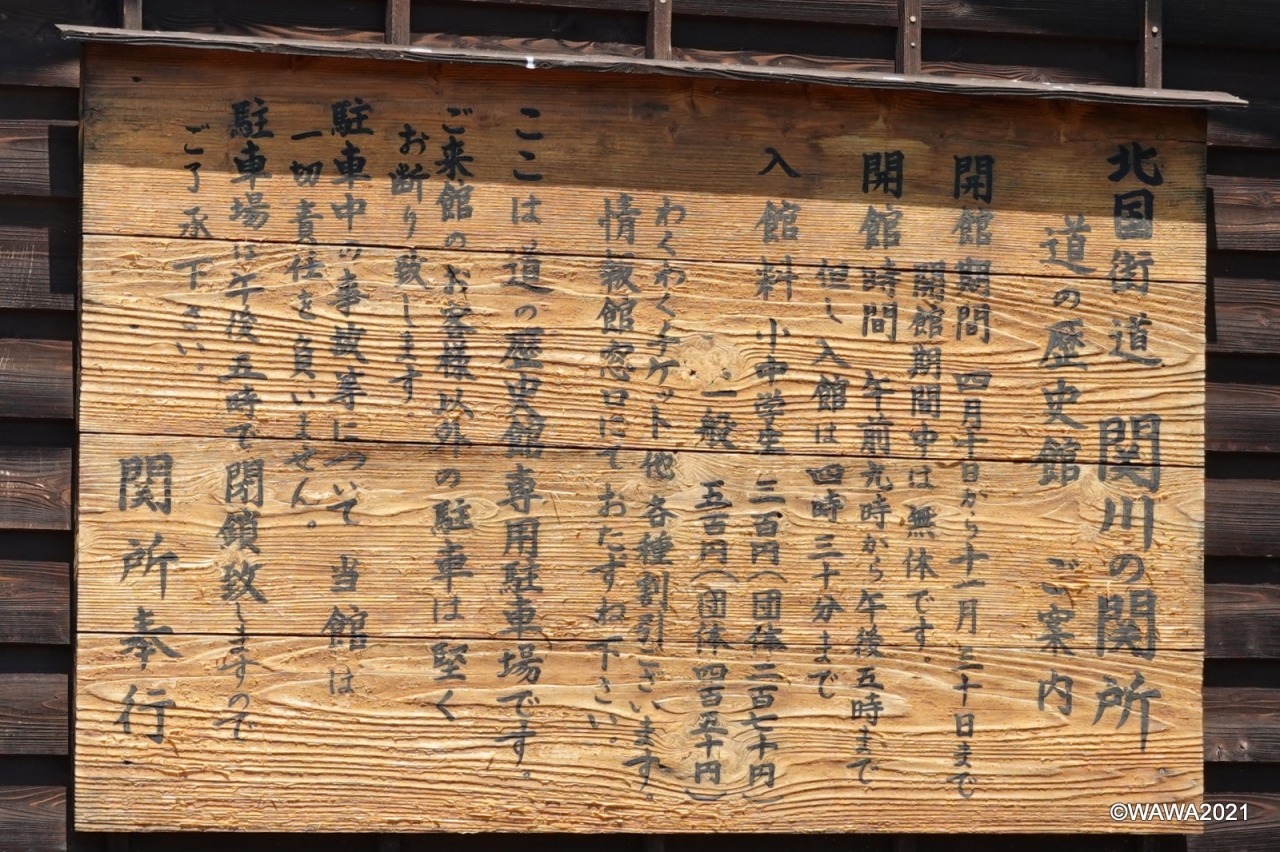 北国街道 関川の関所
道の歴史館 ご案内
開館期間 四月十日から十一月三十日まで
開館期間中は無休です。
開館時間 午前九時から午後五時まで
但し 入館は 四時三十分まで
入館料 小中学生 三百円(団体二百七十円)
一般 五百円(団体 四百五十円)
わくわくチケット他各種割引ざいます。
情報館窓口にておたずね下さい。
ここは道の歴史館専用駐車場です。
ご来館のお客様以外の駐車は堅く
お断り致します。
駐車中の事故等について 当館は
一切責任を負いません。
駐車場は午後五時で閉鎖致しますので
ご了承下さい
関所奉行
©WAWA2021